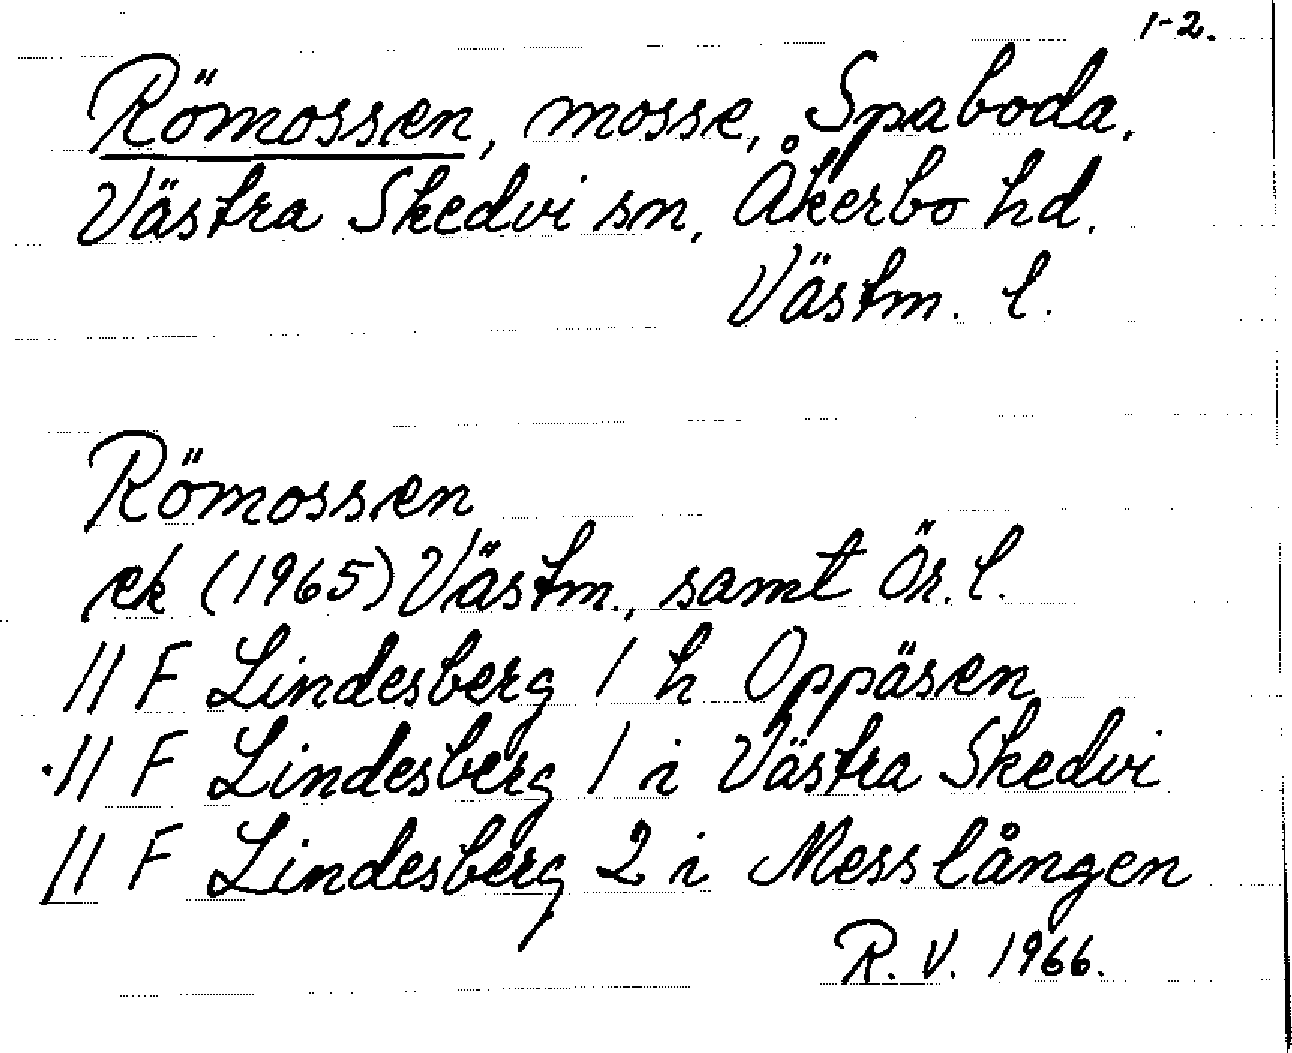 1-2.
Römossen, mosse, Spaboda,
Västra Skedvi sn, Åkerbo hd.
Västm. l.
Römossen
ek (1965) Västm., samt Ör. l.
11 F Lindesberg 1 h Oppäsen
11 F Lindesberg 1 i Västra Skedvi
11 F Lindesberg 2 i Messlången
R. V. 1966.